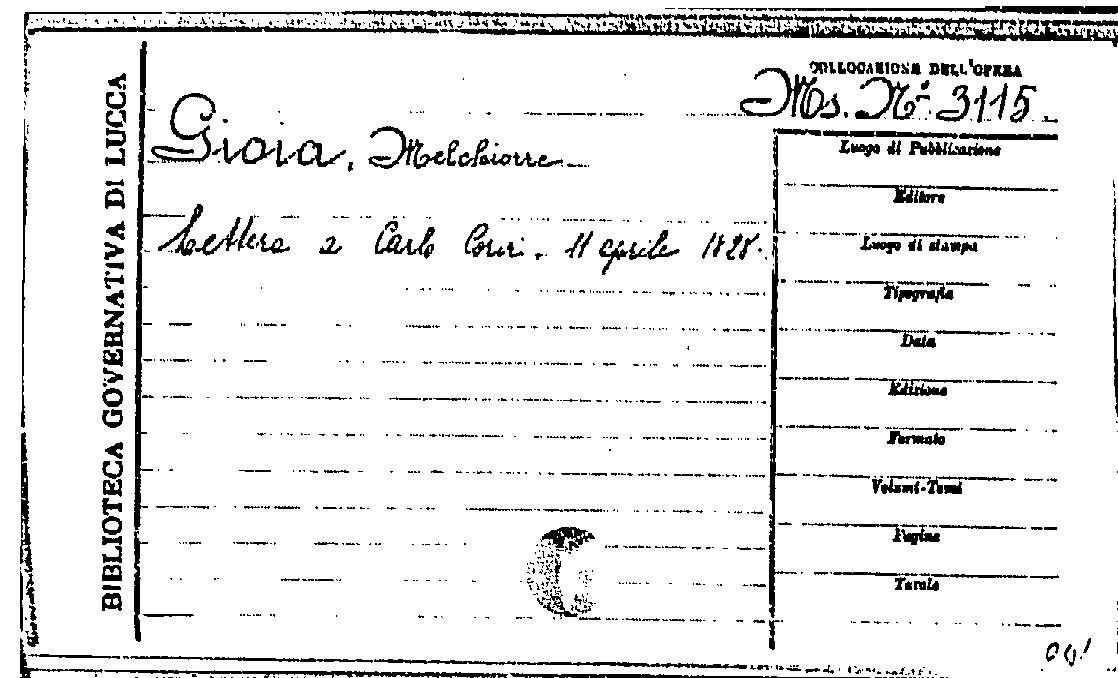 BIBLIOTECA GOVERNATIVA DI LUCCA
COLLOCAZIONE DELL'OPERA
Ms. N.º 3115
Gioia, Melchiorre
Lettera a Carlo 11 aprile 1828.
Luogo di Pubblicazione
Editore
Luogo di stampa
Tipografia
Data
Edizione
Formato
Volumi-Tomi
Pagine
Tavole